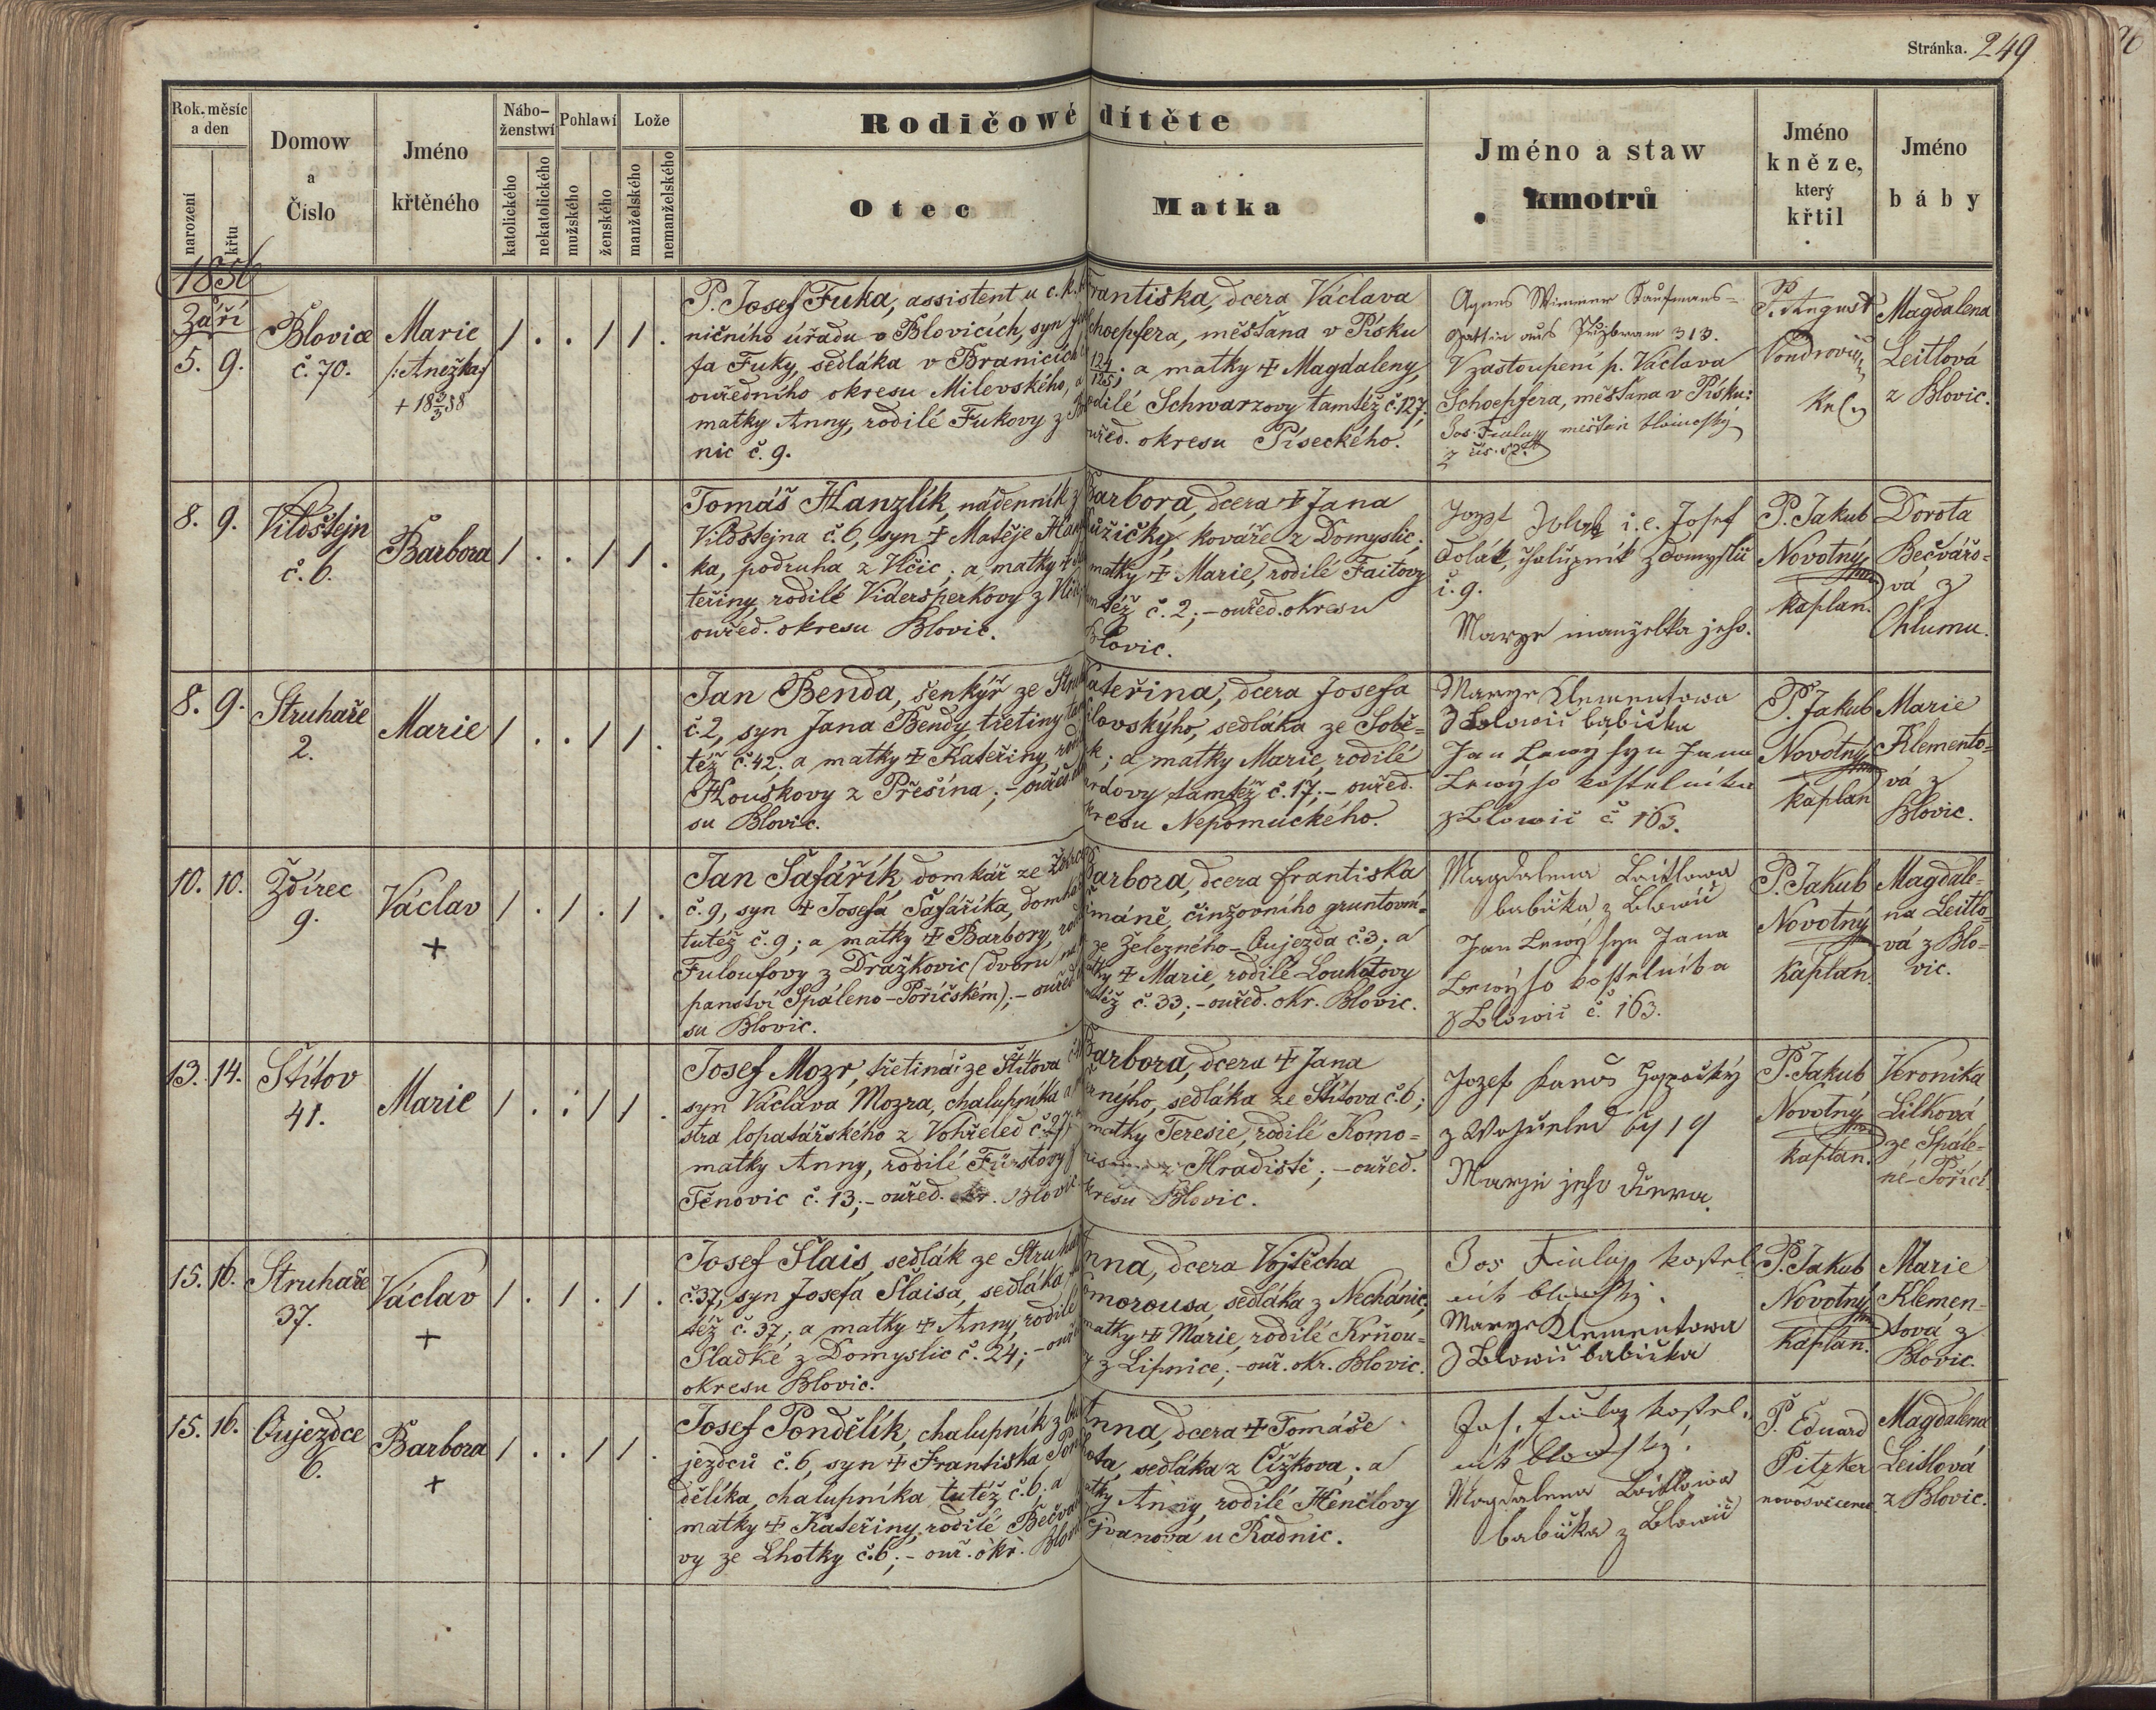 Stránka. 249
Rok. měsíc a den
narození
křtu
Domow a Čislo
Jméno křtěného
Nábo-ženstwí
katolického
nekatolického
Pohlawí
mužského
ženského
Lože
manželského
nemanželského
Rodičowé dítěte
Otec
Matka
Jméno a staw kmotrů
Jméno kněze, který křtil
Jméno báby
1856
Září
5. 9.
Blovice
č. 70.
Marie
/:Anežka:/
1 . . 1 1 .
P. Josef Fuka, assistent u c. k.
ničního úřadu v Blovicích, syn
fa Fuky, sedláka v Branicích
ouředního okresu Milevského, a
matky Anny, rodilé Fukovy z
nic č. 9.
Františka, dcera Václava
choepfera, měšťana v Písku
124/125; a matky † Magdaleny,
odilé Schwarzovy tamtéž č. 127;
ouřed. okresu Píseckého.
Agnes Wimmer Kaufmans-
gattin aus Przibram 313.
V zastoupení p. Václava
Schoepfera, měšťana v Písku:
Jos. Fiala měšťan blowický
P. August
Magdalena
Leitlová
z Blovic.
8. 9.
Vildštejn
č. 6.
Barbora
1 . . 1 1 .
Tomáš Hanzlík, nádenník z
Vildštejna č. 6, syn † Matěje
ka, podruha z Vlčic; a matky †
teřiny, rodilé Vidersperkovy z
ouřed. okresu Blovic.
Barbora, dcera † Jana
užičky, kováře z Domyslic;
matky † Marie, rodilé Faitovy
též č. 2; – ouřed. okresu
Blovic.
i. e. Josef
Dolák, chalupník z Domyslic
č. 9.
Marye manzelka jeho.
P. Jakub
Novotný
kaplan.
Dorota
Bečvářo-
vá z
Chlumu.
8. 9.
Struhaře
2.
Marie
1 . . 1 1 .
Jan Benda, šenkýř ze
č. 2, syn Jana Bendy, třetiny
též č. 42; a matky † Kateřiny,
Houškovy z Přešína; – ouřed.
su Blovic.
Kateřina, dcera Josefa
ilovskýho, sedláka ze Sobě-
k; a matky Marie, rodilé
ardovy tamtéž č. 17; – ouřed.
kresu Nepomuckého.
Marye Klementowa
z Blowic babička
Jan Lewy syn Jana
Lewýho kostelnika
z Blowic č 163.
P. Jakub
Novotný
kaplan
Marie
Klemento-
vá z
Blovic.
10. 10.
Ždírec
9.
Václav
+
1 . 1 . 1 .
Jan Šafařík, domkář ze
č. 9, syn † Josefa Šafaříka,
tutéž č. 9; a matky † Barbory,
Fuloufovy z Dražkovic (dvoru
panství Spáleno-Poříčském); –
su Blovic.
Barbora, dcera Františka
imáně, činžovního gruntovní-
ze Železného-Oujezda č. 3; a
† Marie, rodilé Loukotovy
též č. 33; – ouřed. okr. Blovic.
Magdalena Leitlowa
babička z Blowic
Jan Lewý syn Jana
Lewýho kostelnika
z Blowic č. 163.
P. Jakub
Novotný
Kaplan.
Magdale-
na Leitlo-
vá z Blo-
vic.
13. 14.
Štítov
41.
Marie
1 . . 1 1 .
Josef Mozr, třetinář ze Štítova
syn Václava Mozra, chalupníka a
stra lopatářského z Vohřeled
matky Anny, rodilé Fürstovy z
Těnovic č. 13; – ouřed. okr. Blovic
Barbora, dcera † Jana
ernýho, sedláka ze Štítova č. 6;
matky Teresie, rodilé Komo-
z Hradiště; – ouřed.
kresu Blovic.
Jozef
z Wohřeled 19
Marye jeho dcera.
P. Jakub
Novotný
kaplan.
Veronika
Lilková
ze Spále-
né-Poříčí.
15. 16.
Struhaře
37.
Václav
+
1 . 1 . 1 .
Josef Šlais, sedlák ze
č. 37, syn Josefa Šlaisa, sedláka
též č. 37; a matky † Anny, rodilé
Sladké z Domyslic č. 24; –
okresu Blovic.
Anna, dcera Vojtěcha
omorousa, sedláka z Nechánic;
matky † Marie, rodilé Krňou-
z Lipnice; – ouř. okr. Blovic.
Jos Fiala kostel-
nik blowický.
Marye Klementowa
z Blowic babička
P. Jakub
Novotný
Kaplan.
Marie
Klemen-
tová z
Blovic.
15. 16.
Oujezdce
6.
Barbora
+
1 . . 1 1 .
Josef Pondělík, chalupník z
jezdců č. 6, syn † Františka
dělíka, chalupníka tutéž č. 6; a
matky † Kateřiny, rodilé
vy ze Lhotky č. 6; – ouř. okr.
Anna, dcera † Tomáše
sedláka z Čížkova; a
Anny, rodilé Henčlovy
u Radnic.
Jos. Fiala kostel-
nik blowický.
Magdalena Leitlowa
babička z Blowic
P. Eduard
Pitzker
novosvěcenec
Magdalena
Leitlová
z Blovic.